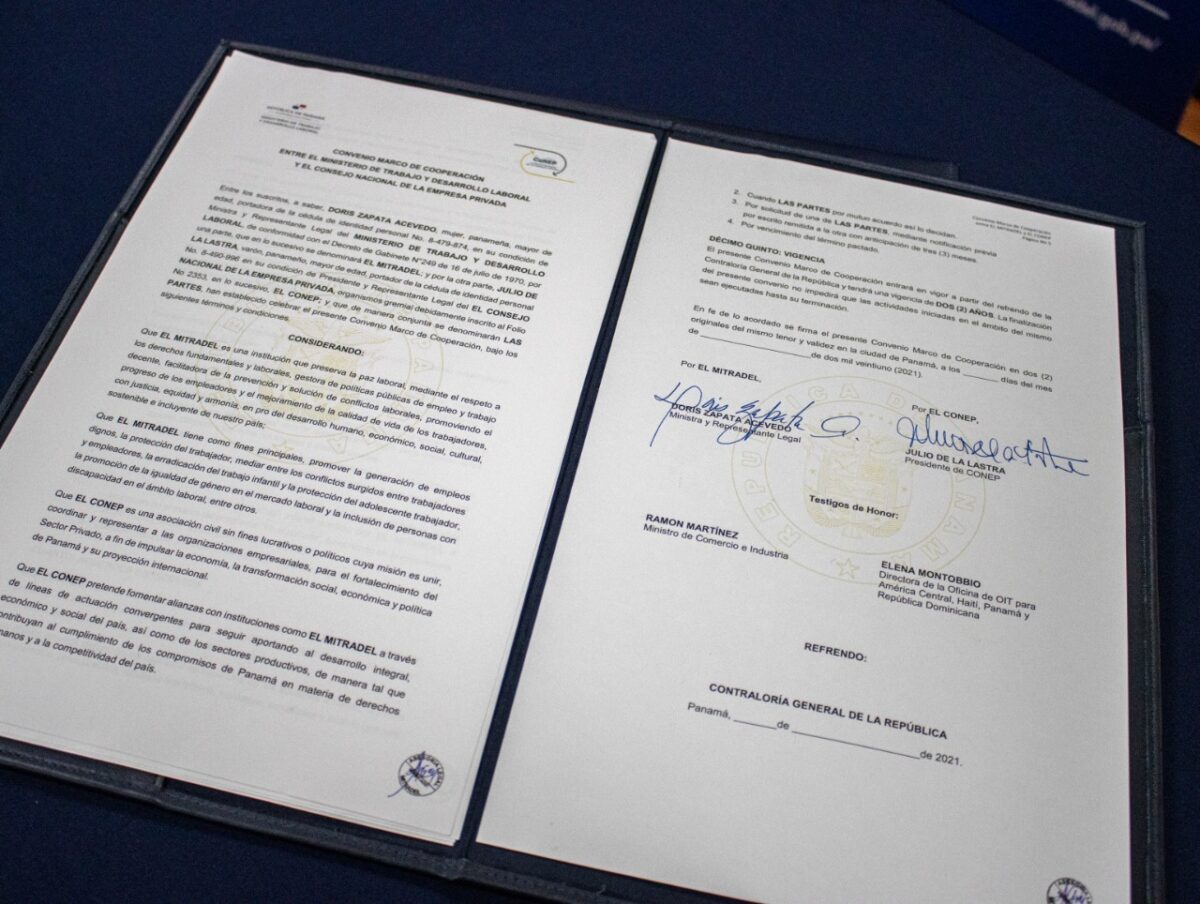 REPÚBLICA DE PANAMÁ
MINISTERIO DE TRABAJO
Y DESARROLLO LABORAL
CoNEP
CONVENIO MARCO DE COOPERACIÓN
ENTRE EL MINISTERIO DE TRABAJO Y DESARROLLO LABORAL
Y EL CONSEJO NACIONAL DE LA EMPRESA PRIVADA
Entre los suscritos, a saber, DORIS ZAPATA ACEVEDO, mujer, panameña, mayor de
edad, portadora de la cédula de identidad personal No. 8-479-874, en su condición de
Ministra y Representante Legal del MINISTERIO DE TRABAJO Y DESARROLLO
LABORAL, de conformidad con el Decreto de Gabinete N°249 de 16 de julio de 1970, por
una parte, que en lo sucesivo se denominará EL MITRADEL; y por la otra parte, JULIO DE
LA LASTRA, varón, panameño, mayor de edad, portador de la cédula de identidad personal
No. 8-490-996 en su condición de Presidente y Representante Legal del EL CONSEJO
NACIONAL DE LA EMPRESA PRIVADA, organismos gremial debidamente inscrito al Folio
No 2353, en lo sucesivo, EL CONEP; y que de manera conjunta se denominarán LAS
PARTES, han establecido celebrar el presente Convenio Marco de Cooperación, bajo los
siguientes términos y condiciones.
CONSIDERANDO:
Que EL MITRADEL es una institución que preserva la paz laboral, mediante el respeto a
los derechos fundamentales y laborales, gestora de políticas públicas de empleo y trabajo
decente, facilitadora de la prevención y solución de conflictos laborales, promoviendo el
progreso de los empleadores y el mejoramiento de la calidad de vida de los trabajadores,
con justicia, equidad y armonía, en pro del desarrollo humano, económico, social, cultural,
sostenible e incluyente de nuestro país;
Que EL MITRADEL tiene como fines principales, promover la generación de empleos
dignos, la protección del trabajador, mediar entre los conflictos surgidos entre trabajadores
y empleadores, la erradicación del trabajo infantil y la protección del adolescente trabajador,
la promoción de la igualdad de género en el mercado laboral y la inclusión de personas con
discapacidad en el ámbito laboral, entre otros.
Que EL CONEP es una asociación civil sin fines lucrativos o políticos cuya misión es unir,
coordinar y representar a las organizaciones empresariales, para el fortalecimiento del
Sector Privado, a fin de impulsar la economía, la transformación social, económica y política
de Panamá y su proyección internacional.
Que EL CONEP pretende fomentar alianzas con instituciones como EL MITRADEL a través
de líneas de actuación convergentes para seguir aportando al desarrollo integral,
económico y social del país, así como de los sectores productivos, de manera tal que
contribuyan al cumplimiento de los compromisos de Panamá en materia de derechos
manos y a la competitividad del país.
ASESORÍA LEGAL
MITRADEL
Convenio Marco de Cooperación
entre EL MITRADEL y EL CONEP
2. Cuando LAS PARTES por mutuo acuerdo así lo decidan.
3. Por solicitud de una de LAS PARTES, mediante notificación previa
por escrito remitida a la otra con anticipación de tres (3) meses.
4. Por vencimiento del término pactado.
DÉCIMO QUINTO: VIGENCIA
El presente Convenio Marco de Cooperación entrará en vigor a partir del refrendo de la
Contraloría General de la República y tendrá una vigencia de DOS (2) AÑOS. La finalización
del presente convenio no impedirá que las actividades iniciadas en el ámbito del mismo
sean ejecutadas hasta su terminación.
En fe de lo acordado se firma el presente Convenio Marco de Cooperación en dos (2)
originales del mismo tenor y validez en la ciudad de Panamá, a los ______ días del mes
de ____________________de dos mil veintiuno (2021).
Por EL MITRADEL,
Por EL CONEP,
Doris Zapata A.
DORIS ZAPATA ACEVEDO
Ministra y Representante Legal
JULIO DE LA LASTRA
Presidente de CONEP
REPUBLICA DE PANAMA
Testigos de Honor:
RAMON MARTÍNEZ
Ministro de Comercio e Industria
ELENA MONTOBBIO
Directora de la Oficina de OIT para
América Central, Haití, Panamá y
República Dominicana
REFRENDO:
CONTRALORÍA GENERAL DE LA REPÚBLICA
Panamá, _______de ____________________de 2021.